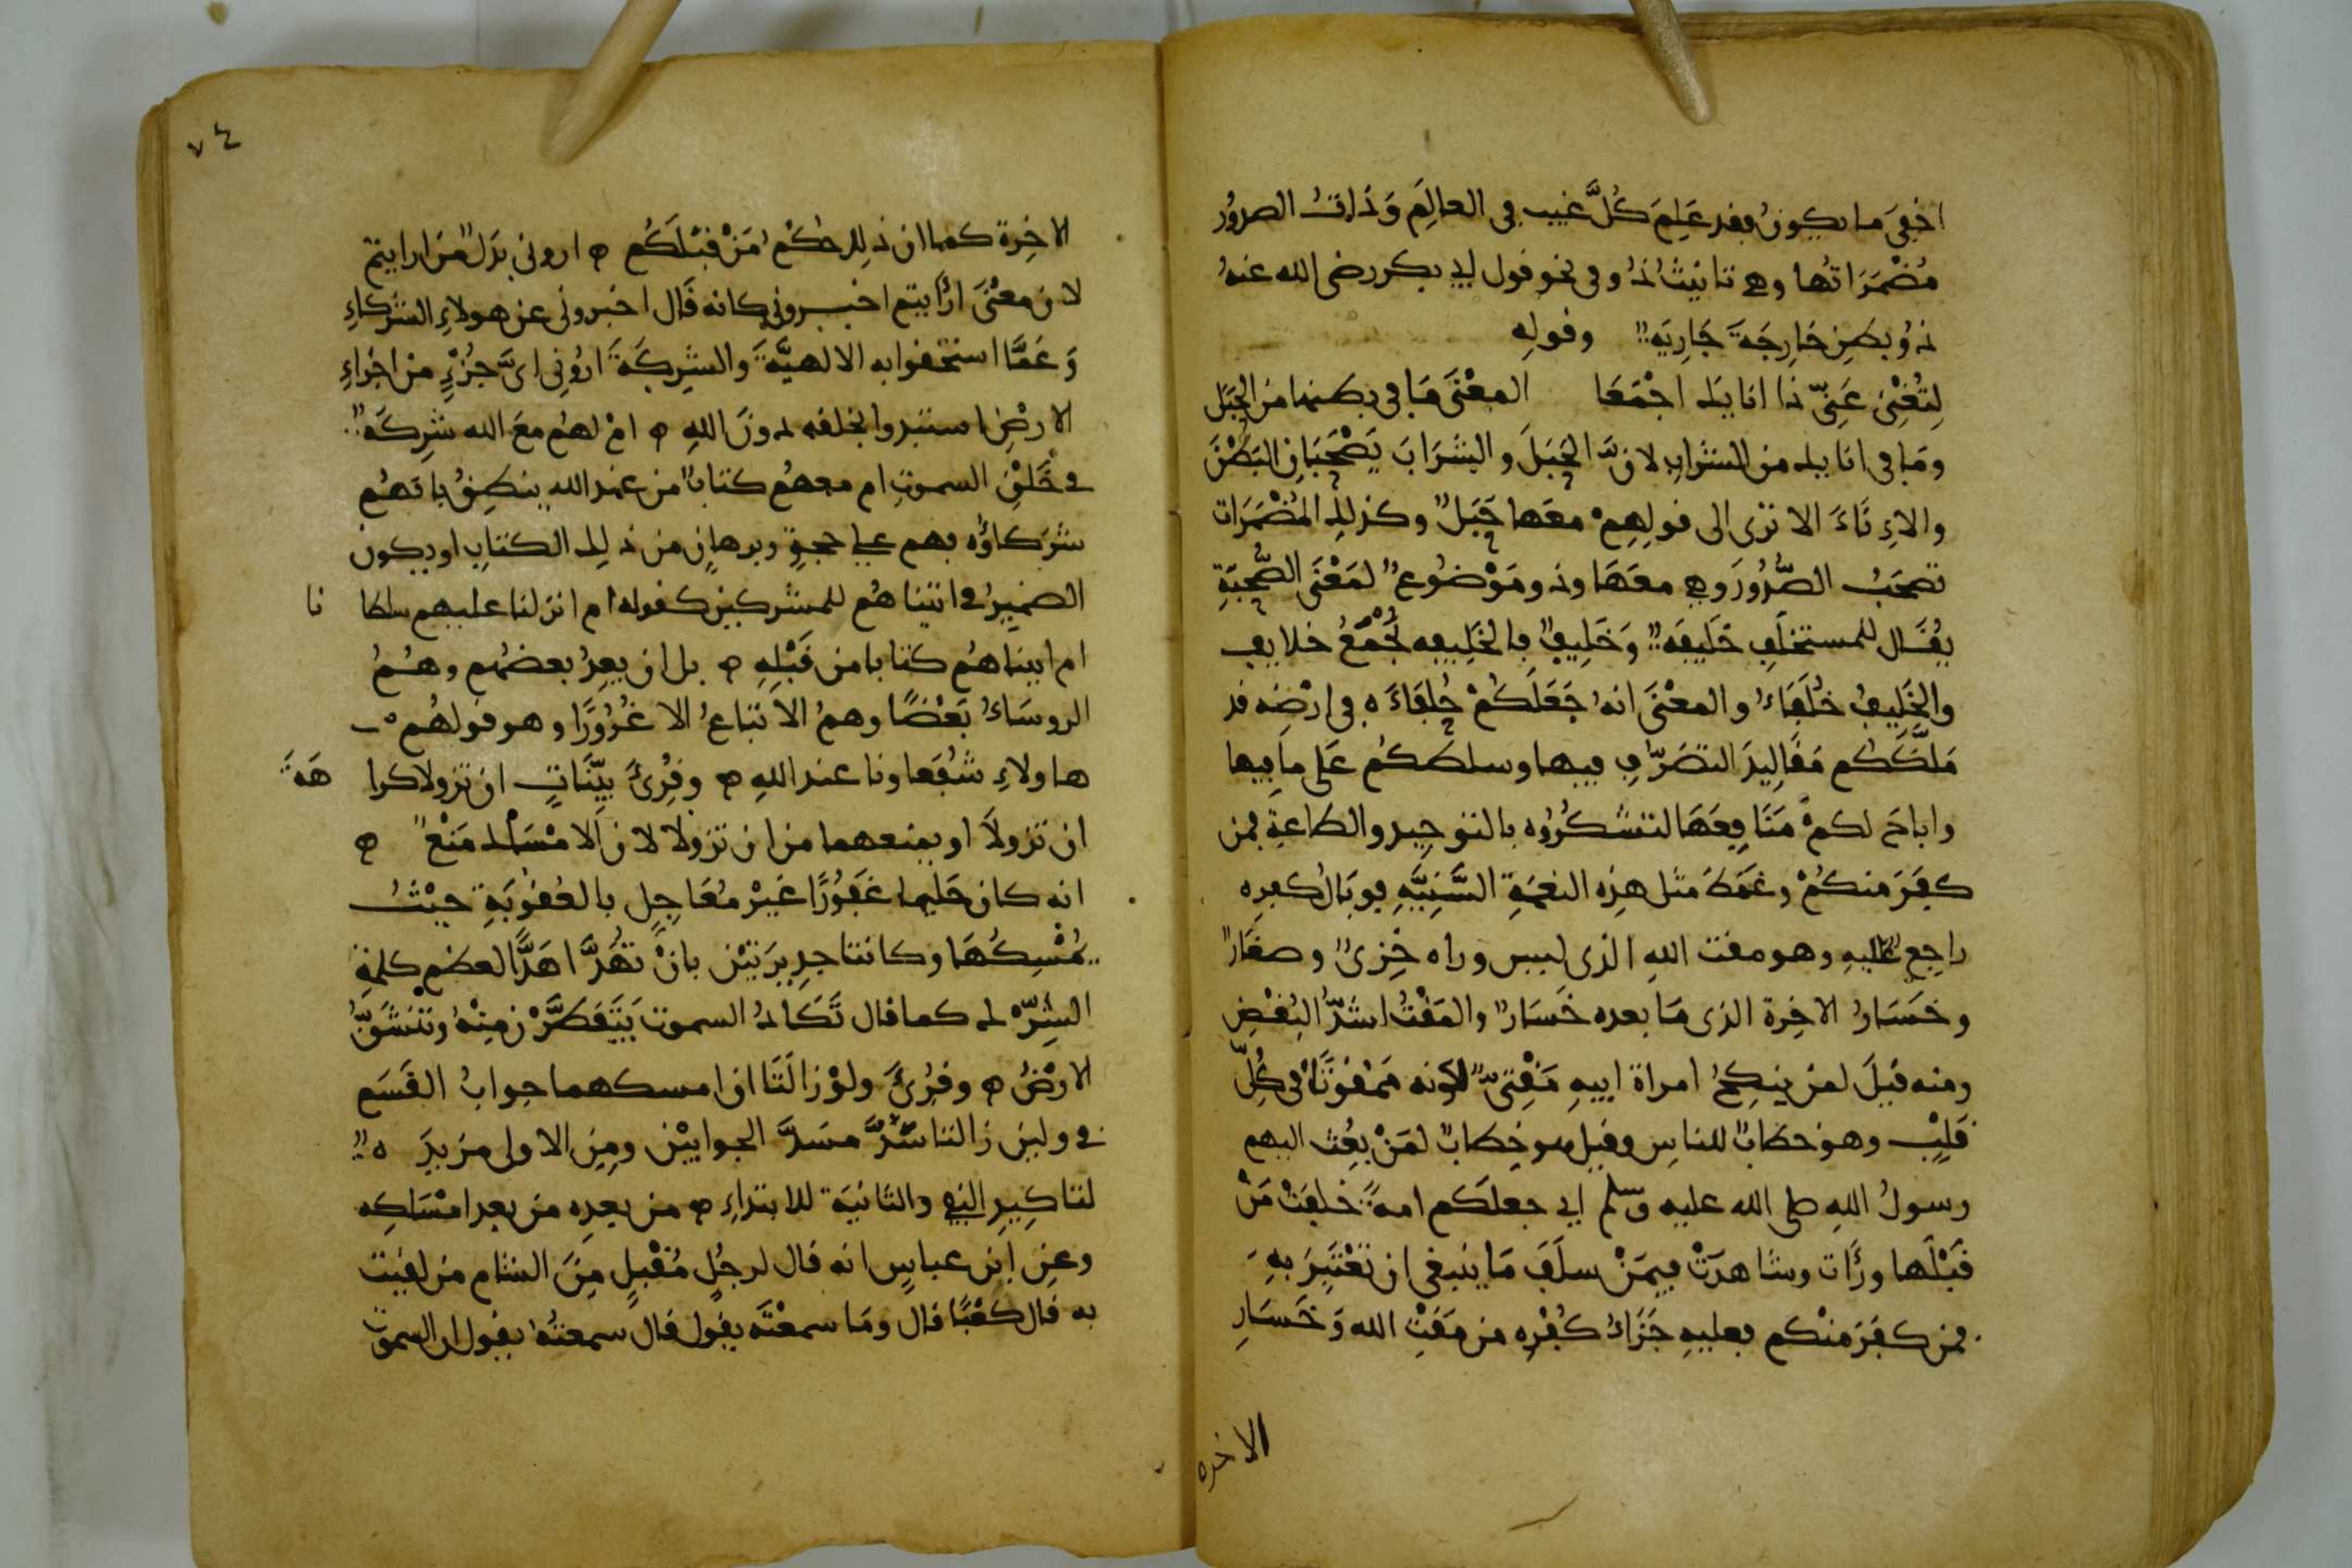 اخفى ما يكون فقد علم كل غيب في العالم وذات الصدور
مضمراتها وهي تانيث ذو في نحو قول ابي بكر رضى الله عنه
ذو بطن خارجة جارية وقوله
لتغني عني ذا انايك اجمعا المعنى ما في بطنها من الحبل
وما في انايك من الشراب لان الحبل والشراب يصحبان البطن
والاناء الا ترى الى قولهم معها حبل وكذلك المضمرات
تصحب الصدور وهي معها وذو موضوع لمعنى الصحبة
يقال للمستخلف خليفة وخليف فالخليفة تجمع خلايف
والخليف خلفاء والمعنى انه جعلكم خلفاءه في ارضه قد
ملككم مقاليد التصرف فيها وسلطكم على ما فيها
واباح لكم منافعها لتشكروه بالتوحيد والطاعة فمن
كفر منكم وغمط مثل هذه النعمة السنية فوبال كفره
راجع عليه وهو مقت الله الذى ليس وراه خزى وصغار
وخسار الاخرة الذى ما بعده خسار والمقت اشد البغض
ومنه قيل لمن ينكح امراة ابيه مقتى لكونه ممقوتا في كل
قلب وهو خطاب للناس وقيل هو خطاب لمن بعث اليهم
رسول الله صلى الله عليه وسلم اي جعلكم امة خلفت من
قبلها ورأت وشاهدت فيمن سلف ما ينبغي ان تعتبر به
فمن كفر منكم فعليه جزاء كفره من مقت الله وخسار
الاخرة
٧٤
الاخرة كما ان ذلك حكم من قبلكم ۞ اروني بدل من ارايتم
لان معنى ارأيتم اخبروني كانه قال اخبروني عن هولاء الشركاء
وعما استحقوا به الالهية والشركة اروني اى جزء من اجزاء
الارض استبدوا بخلقه دون الله ۞ ام لهم مع الله شركة
في خلق السموت ام معهم كتاب من عند الله ينطق بانهم
شركاؤه فهم على حجة وبرهان من ذلك الكتاب او يكون
الضمير في اتيناهم للمشركين كقوله ام انزلنا عليهم سلطا نا
ام اتيناهم كتابا من قبله ۞ بل ان يعد بعضهم وهم
الروساء بعضا وهم الاتباع الا غرورا وهو قولهم
هاولاء شفعاونا عند الله ۞ وقرئ بينات ان تزولا كرا هة
ان تزولا او يمنعهما من ان تزولا لان الامساك منع ۞
انه كان حليما غفورا غير معاجل بالعقوبة حيث
يمسكها وكانتا جديرتين بان تهدا هدا لعظم كلمة
الشرك كما قال تكاد السموت يتفطرن منه وتنشق
الارض ۞ وقرئ ولو زالتا ان امسكهما جواب القسم
في ولين زالتا سد مسد الجوابين ومن الاولى مزيد ه
لتاكيد النفي والثانية للابتداء ۞ من بعده من بعد امساكه
وعن ابن عباس انه قال لرجل مقبل من الشام من لقيت
به قال كعبا قال وما سمعته يقول قال سمعته يقول ان السموت